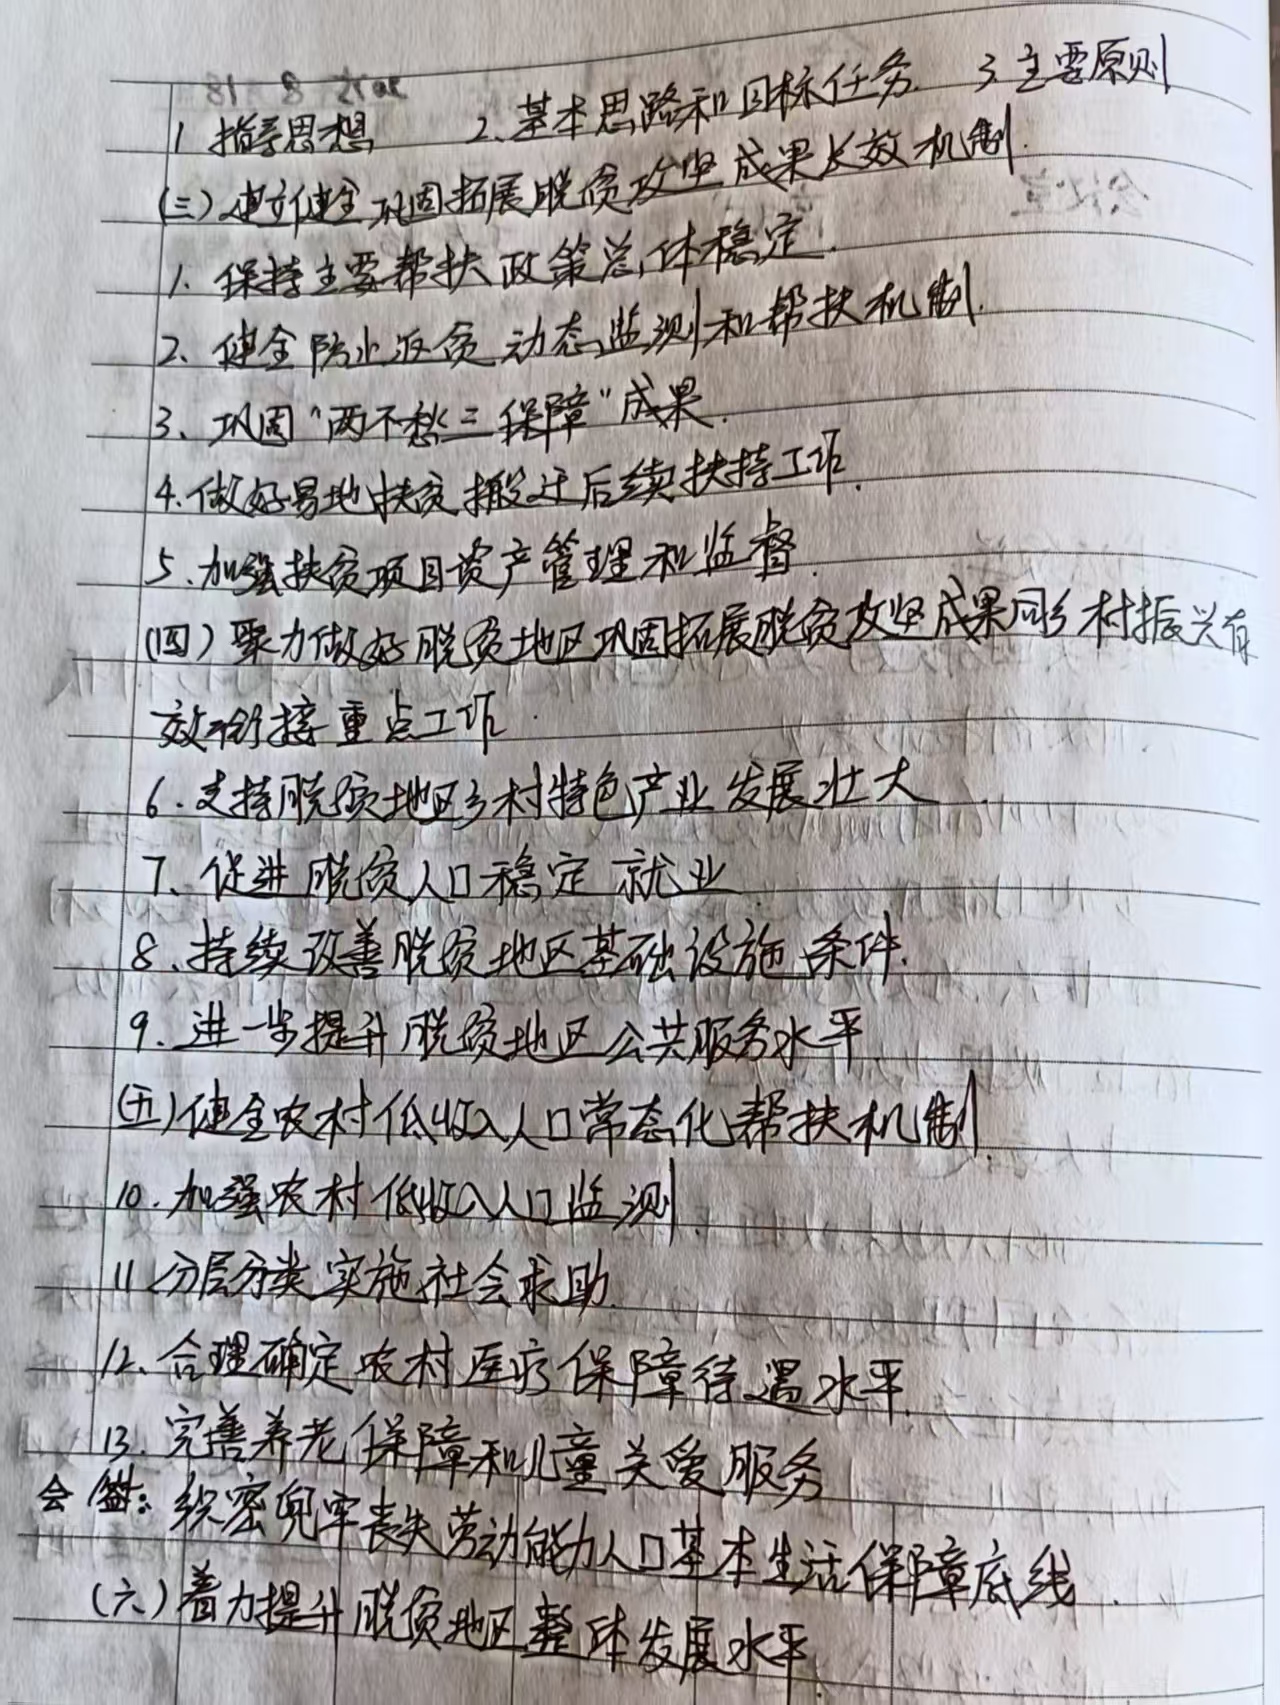 1 指导思想 2、基本思路和目标任务. 3.主要原则
(三)建立健全巩固拓展脱贫攻坚成果长效机制.
1. 保持主要帮扶政策总体稳定.
2、健全防止返贫动态监测和帮扶机制.
3、巩固"两不愁三保障"成果.
4.做好易地扶贫搬迁后续扶持工作.
5.加强扶贫项目资产管理和监督.
(四)聚力做好脱贫地区巩固拓展脱贫攻坚成果同乡村振兴有
效衔接重点工作.
6.支持脱贫地区乡村特色产业发展壮大.
7、促进脱贫人口稳定就业
8、持续改善脱贫地区基础设施条件.
9.进一步提升脱贫地区公共服务水平.
(五)健全农村低收入人口常态化帮扶机制.
10.加强农村低收入人口监测.
11分层分类实施社会求助.
12.合理确定农村医疗保障待遇水平.
13.完善养老保障和儿童关爱服务
会签: 织密兜牢丧失劳动能力人口基本生活保障底线.
(六)着力提升脱贫地区整体发展水平